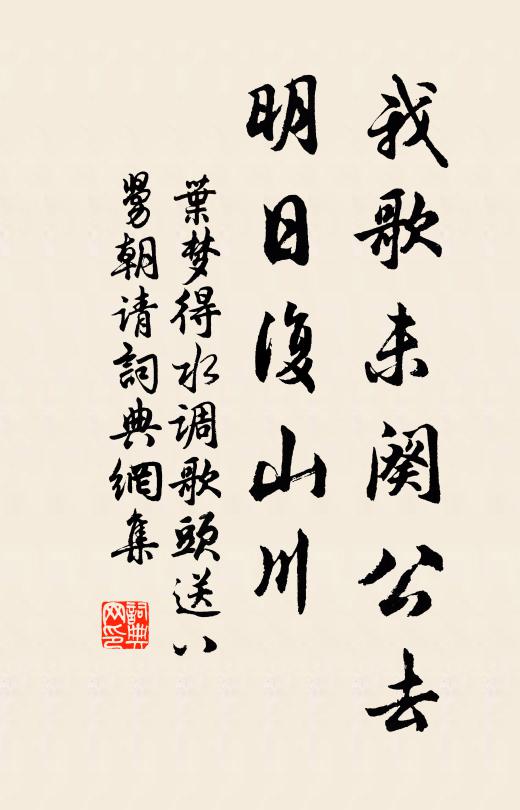 我歌未阕公去
明日復山川
葉梦得水调歌頭送八
舅朝请詞典網集
詞典網印